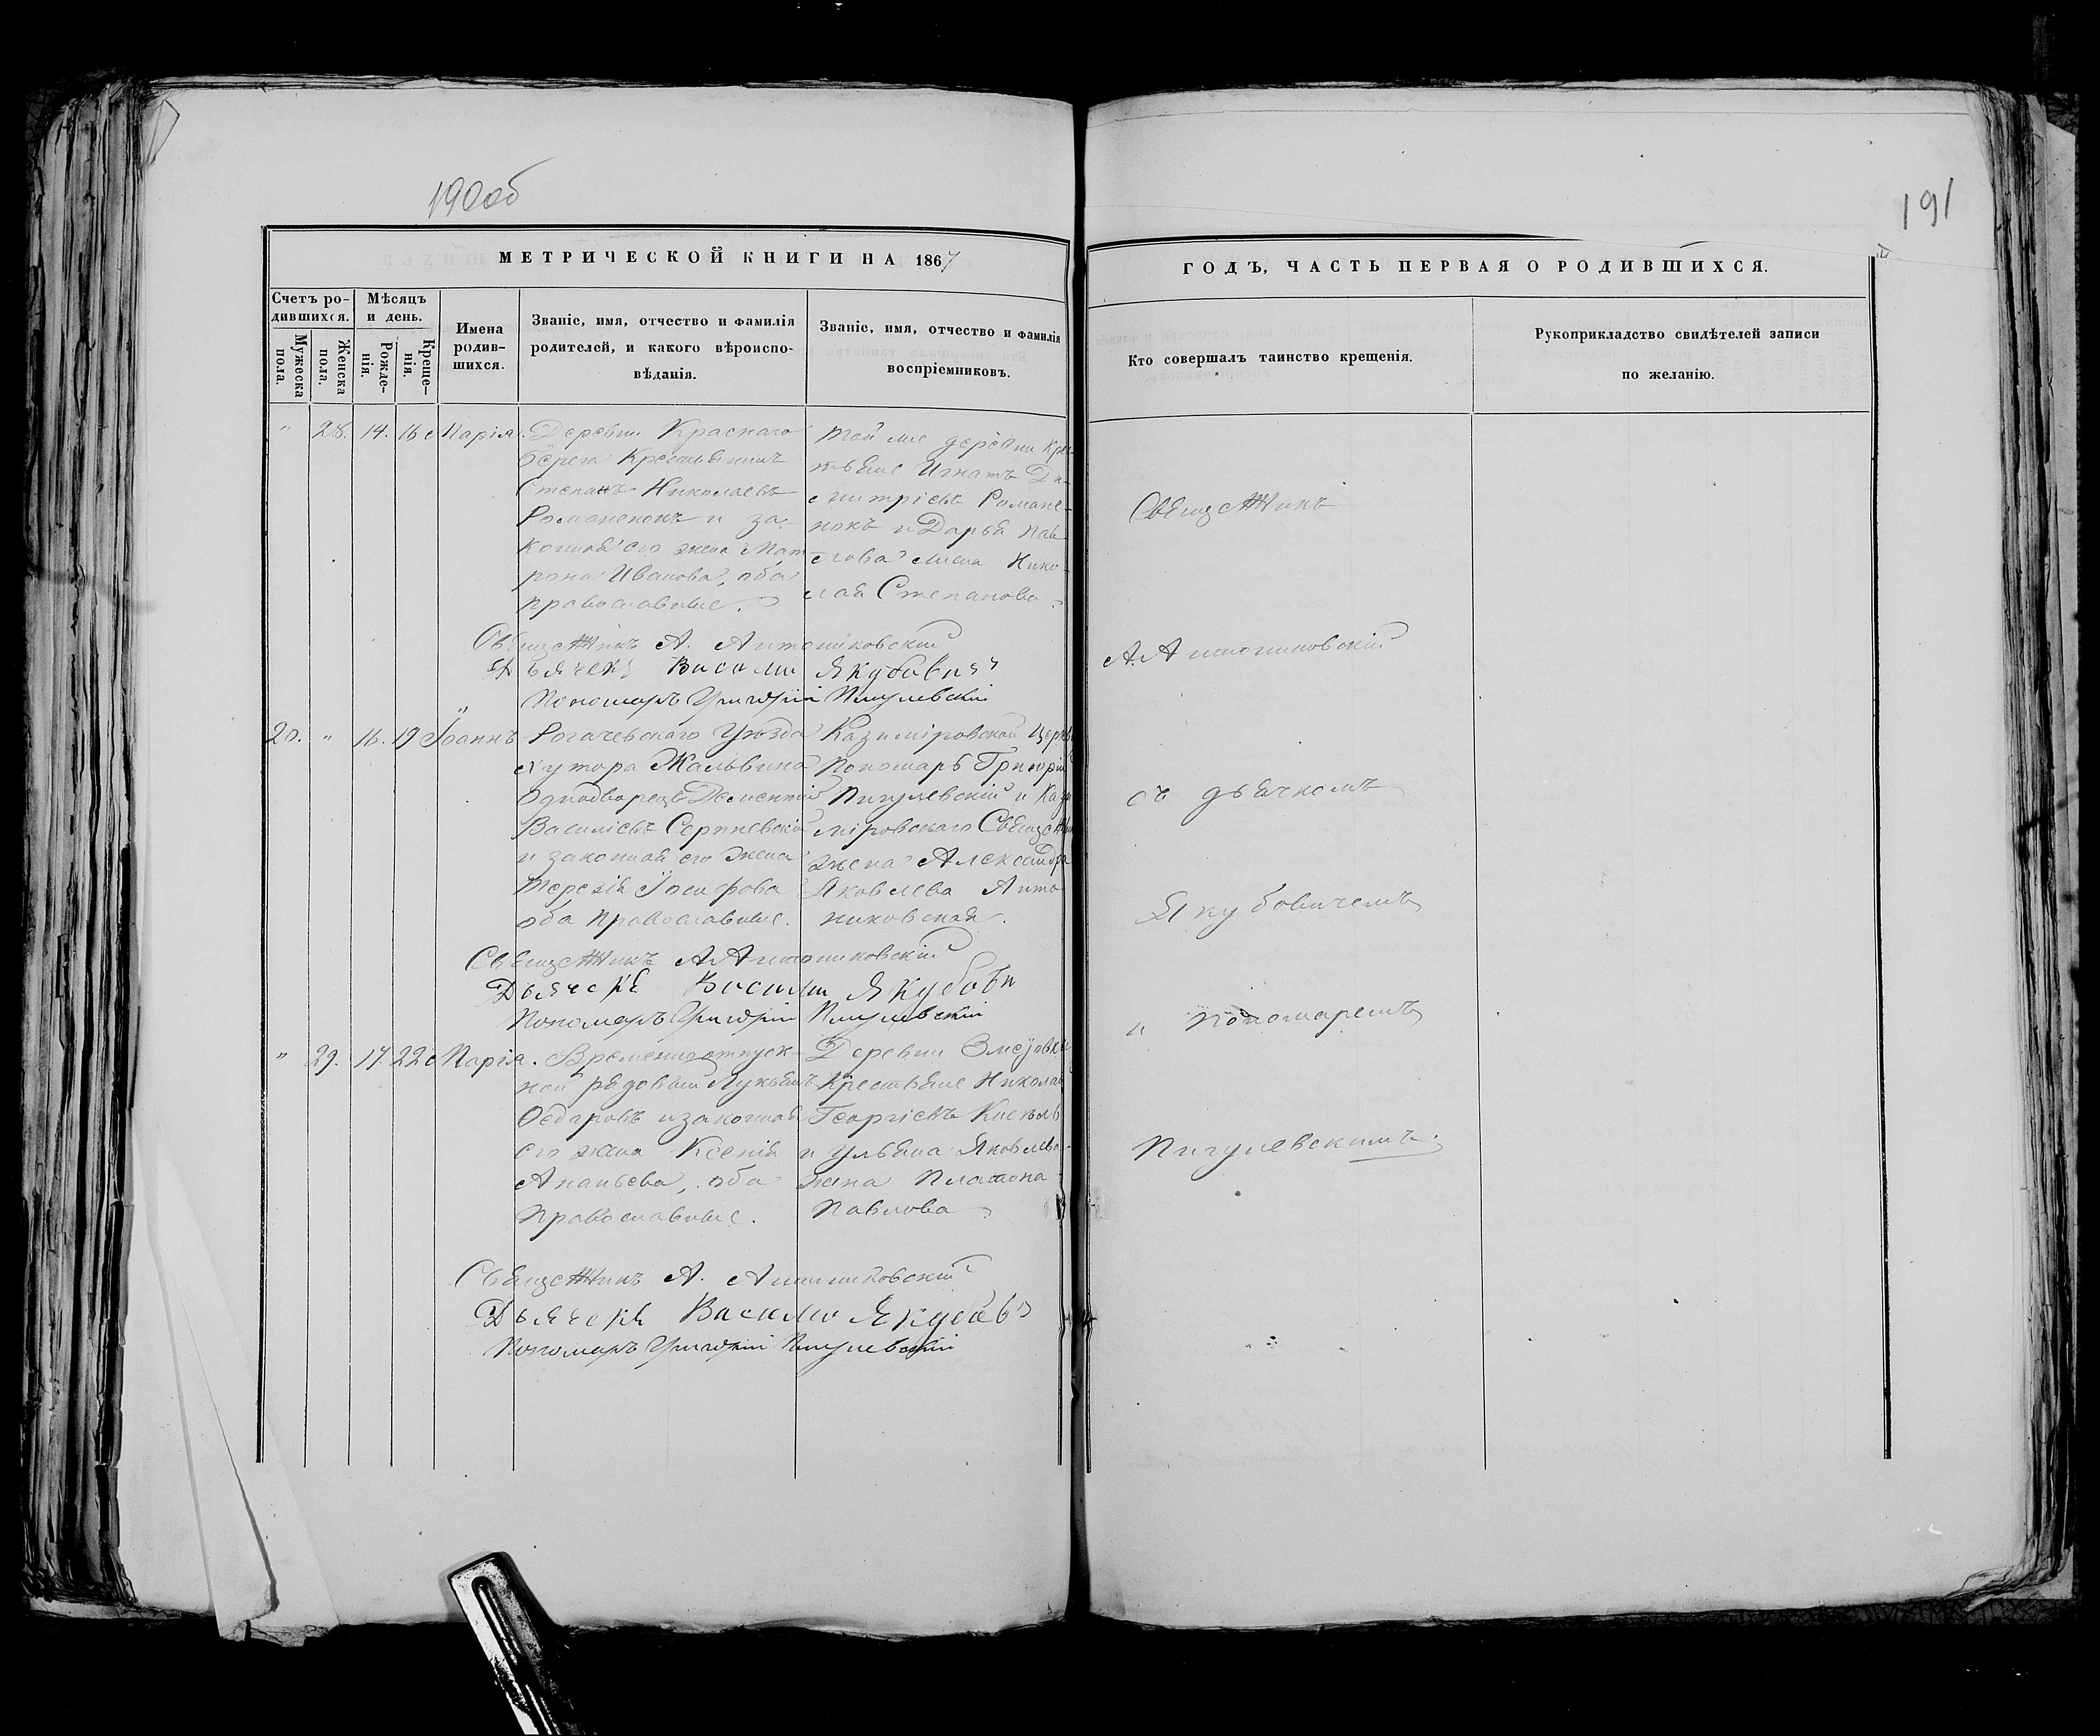 190об
191
МЕТРИЧЕСКОЙ КНИГИ НА 1867
Счетъ ро-
дившихся.
Мужеска
пола.
Женска
пола.
Мѣсяцъ
и день.
Рожде-
нія.
Креще-
нія.
Имена
родив-
шихся.
Званіе, имя, отчество и фамилія
родителей, и какого вѣроиспо-
вѣданія.
Званіе, имя, отчество и фамилія
воспріемниковъ.
" 28. 14. 16 Марія.
Деревни Краснаго
берега Крестьянинъ
Степанъ Николаевъ
Романенокъ и за-
конная его жена Мат
рона Иванова, оба
православные.
той же деревни Кре
тьяне Игнатъ Ди
митріевъ Романе-
нокъ и Дарья Пав
лова жена Нико
лая Степанова
Священникъ А. Антониковскій
Дьячекъ Васили Якубович
Пономаръ Григорій Пигулевскій
20. " 16. 19 Іоаннъ
Рогачевскаго Уѣзда
хутора Жальвина
Однодворецъ Дементій
Василіевъ
и законная его жена
Терезія Іосифова
оба православные.
Казиміровской Церкви
Пономарь Григорій
Пигулевскій и Кази
міровскаго Священ
жена Александра
Яковлева Анто
никовская.
Священникъ А. Антониковскій
Дьячекъ Васили Якубови
Пономаръ Григорій Пигулевскій
" 29. 17. 22 Марія.
Временноотпуск-
ной рядовый Лукьянъ
Ѳедоровъ и законная
его жена Ксенія
Ананьева, оба
Православные.
Деревни
Крестьяне Николай
Георгіевъ
и Ульяна Яковлева
жена Платона
Павлова
Священникъ А. Антониковскій
Дьячекъ Васили Якубов
Пономаръ Григорій Пигулевскій
ГОДЪ, ЧАСТЬ ПЕРВАЯ О РОДИВШИХСЯ.
Кто совершалъ таинство крещенія.
Рукоприкладство свидѣтелей записи
по желанію.
Священникъ
А. Антониковскій
съ дьячкомъ
Якубовичемъ
и пономаремъ
Пигулевскимъ.